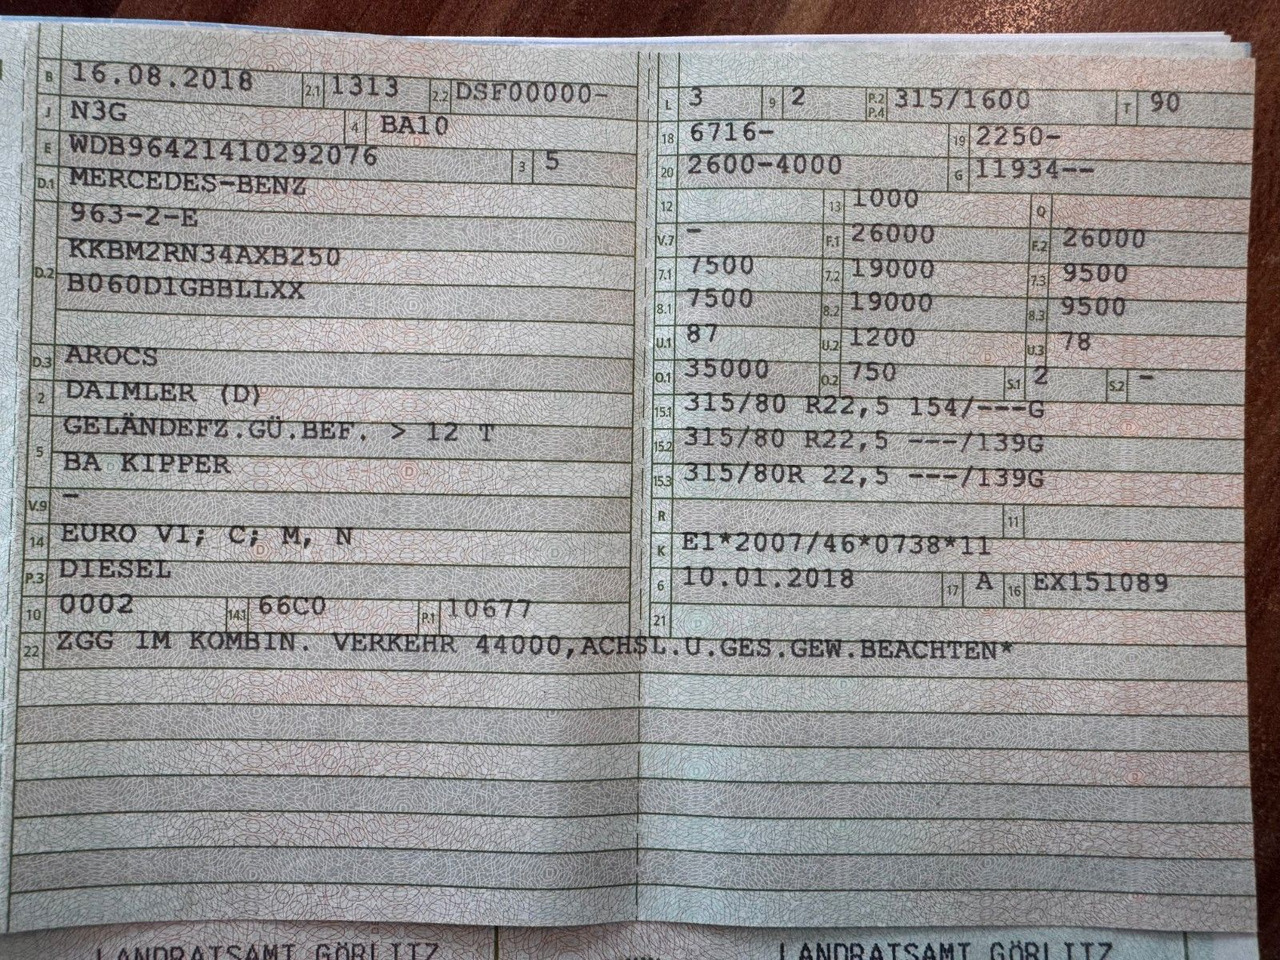 B 16.08.2018 2.1 1313 2.2 DSF00000-
J N3G 4 BA10
E WDB96421410292076 3 5
D.1 MERCEDES-BENZ
D.2 963-2-E
KKBM2RN34AXB250
B060D1GBBLLXX
D.3 AROCS
2 DAIMLER (D)
5 GELÄNDEFZ.GÜ.BEF. > 12 T
BA KIPPER
V.9 -
14 EURO VI; C; M, N
P.3 DIESEL
10 0002 14.1 66C0 P.1 10677
L 3 9 2 P.2 P.4 315/1600 T 90
18 6716- 19 2250-
20 2600-4000 G 11934--
12 13 1000 Q
V.7 - F.1 26000 F.2 26000
7.1 7500 7.2 19000 7.3 9500
8.1 7500 8.2 19000 8.3 9500
U.1 87 U.2 1200 U.3 78
O.1 35000 O.2 750 S.1 2 S.2 -
15.1 315/80 R22,5 154/---G
15.2 315/80 R22,5 ---/139G
15.3 315/80R 22,5 ---/139G
R 11
K E1*2007/46*0738*11
6 10.01.2018 17 A 16 EX151089
21
22 ZGG IM KOMBIN. VERKEHR 44000,ACHSL.U.GES.GEW.BEACHTEN*
LANDRATSAMT GÖRLITZ LANDRATSAMT GÖRLITZ